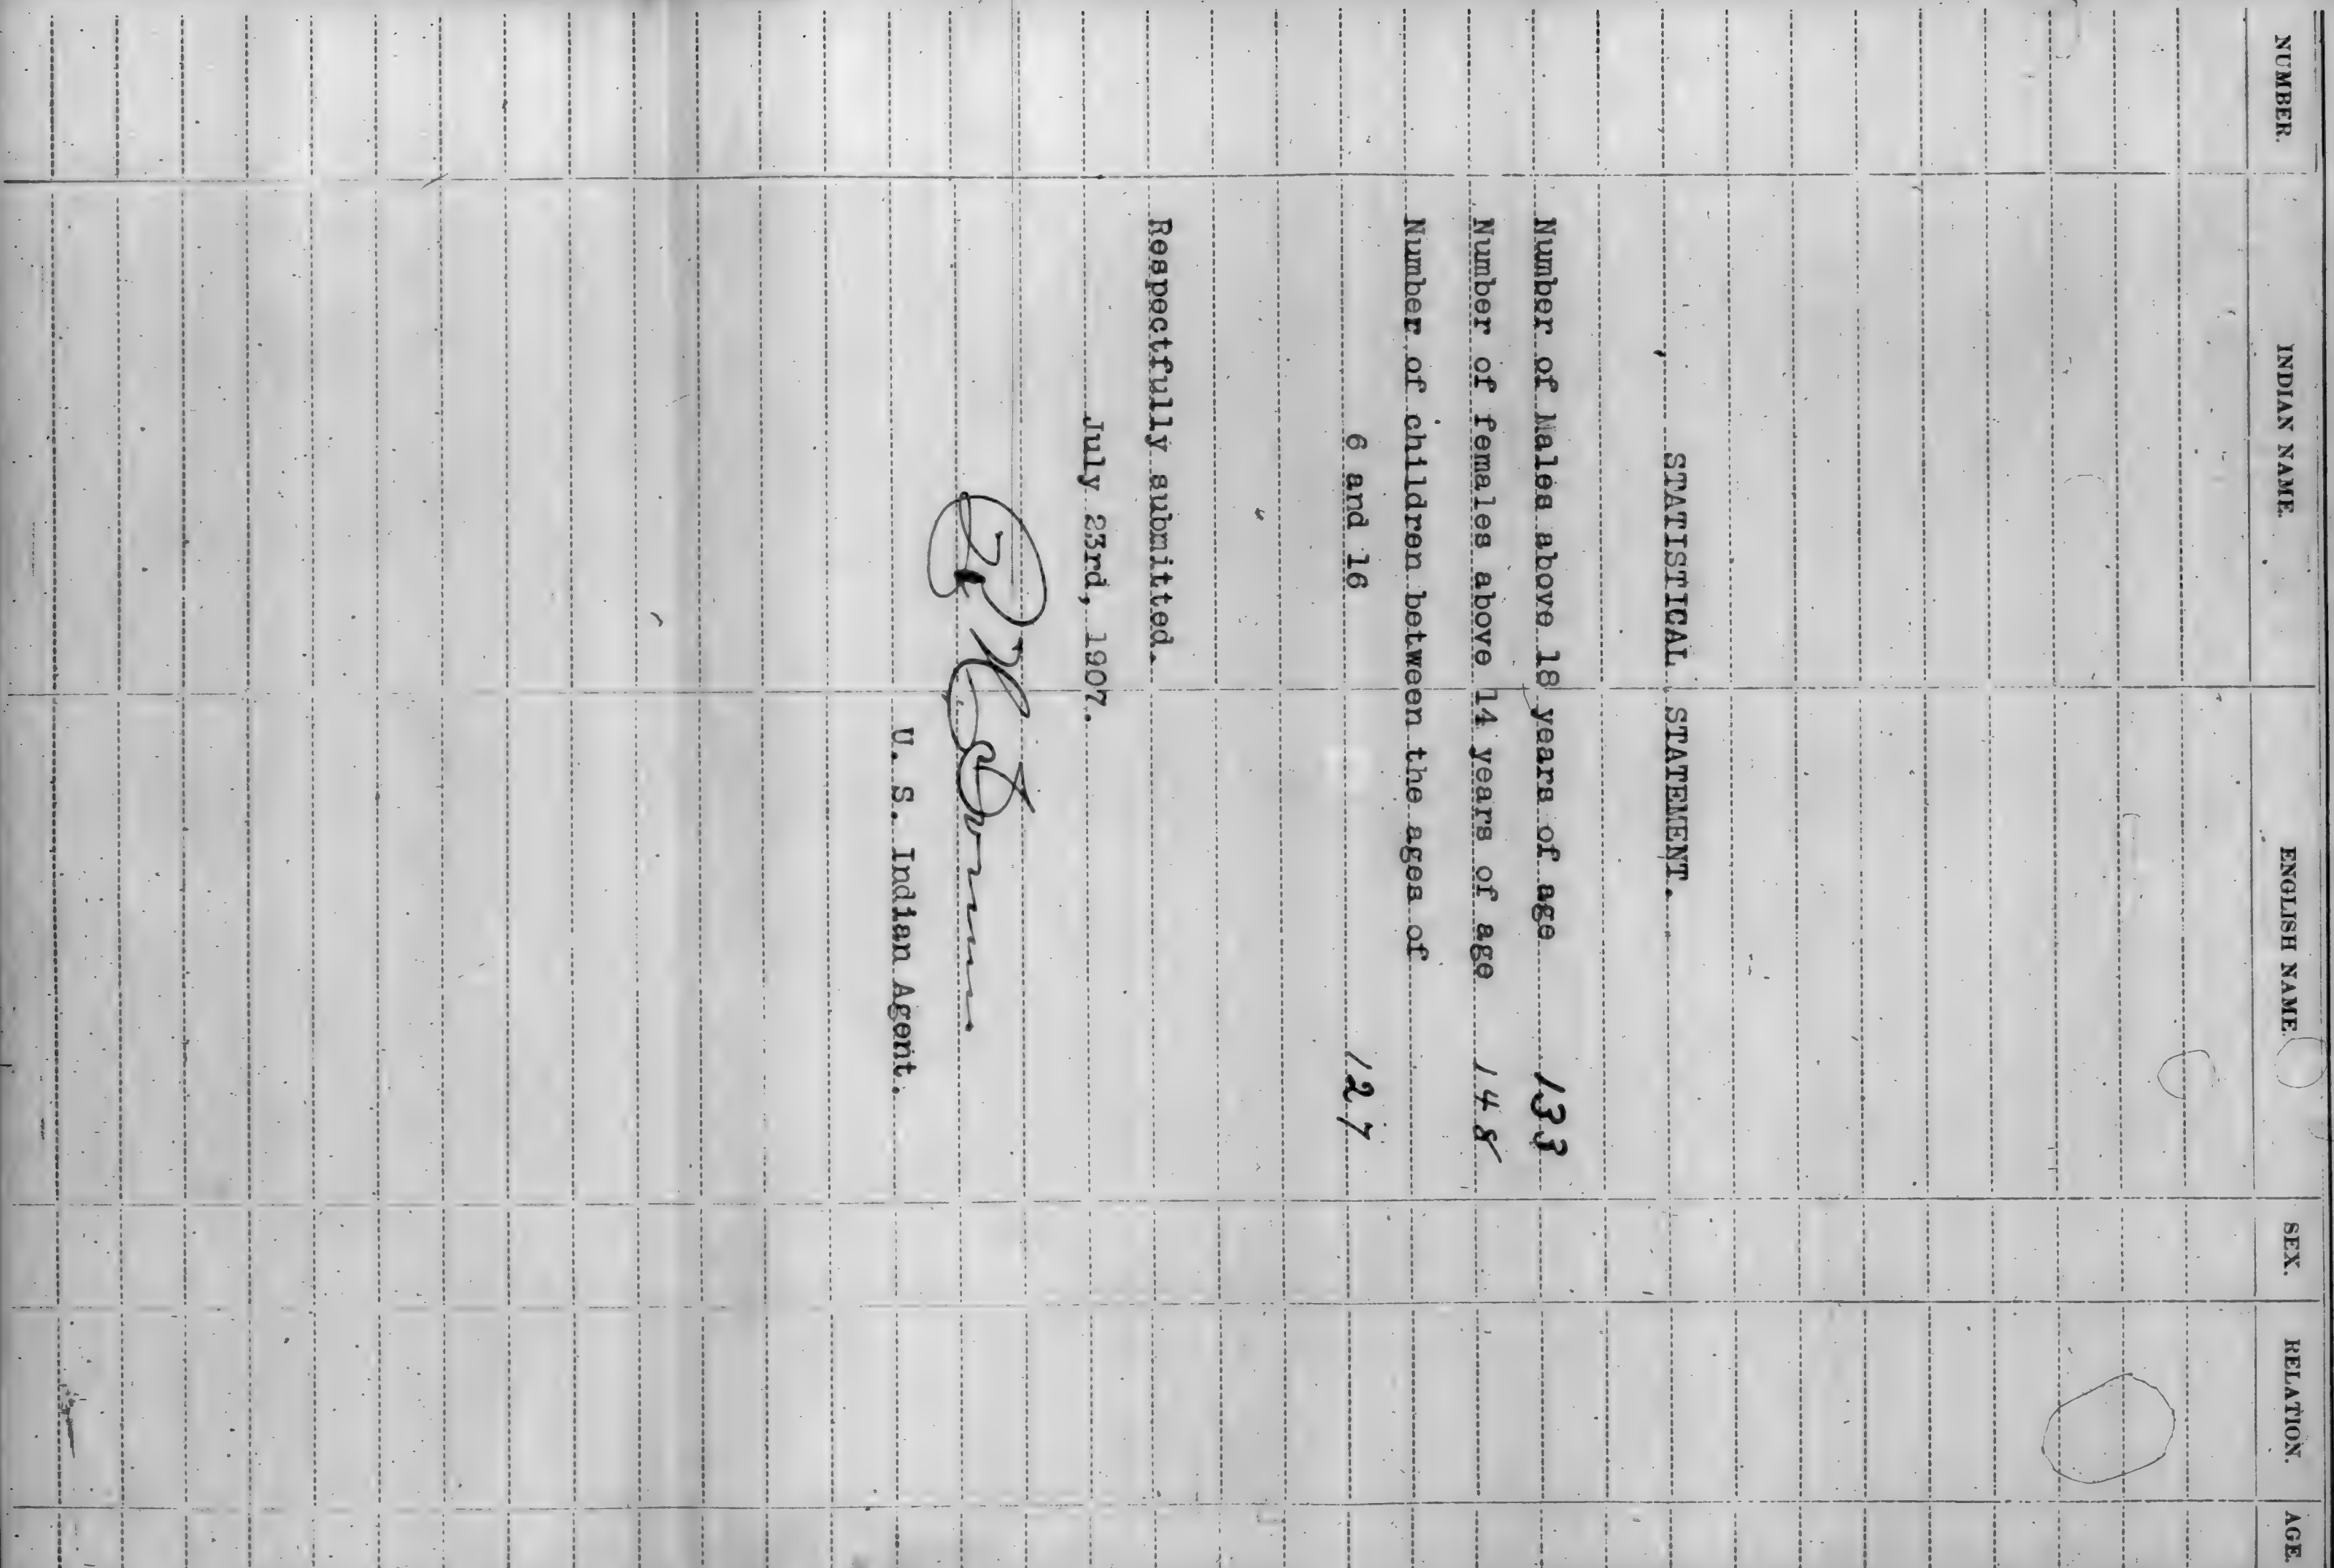 NUMBER. INDIAN NAME. ENGLISH NAME. SEX. RELATION. AGE
STATISTICAL STATEMENT.
Number of Males above 18 years of age 133
Number of females above 14 years of age 148
Number of children between the ages of
6 and 16 127
Respectfully submitted.
July 23rd, 1907.
U. S. Indian Agent.